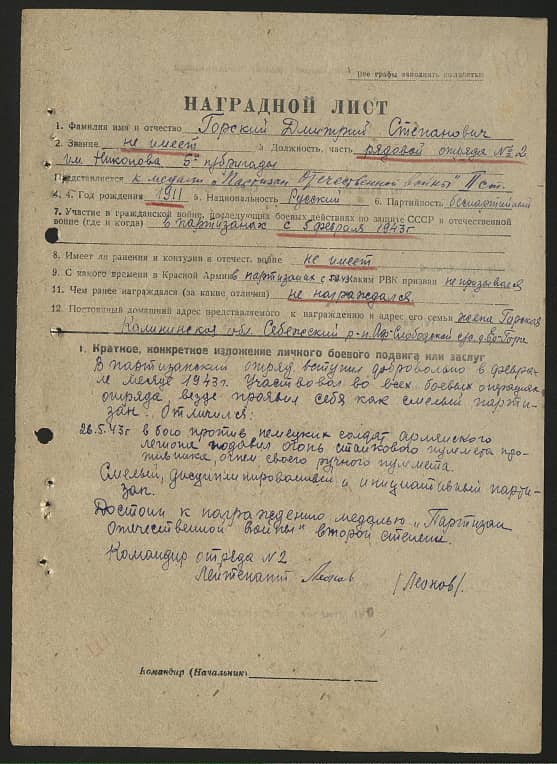 Все графы заполнять полностью
НАГРАДНОЙ ЛИСТ
1. Фамилия имя и отчество Горский Дмитрий Степанович
2. Звание не имеет 3 Должность, часть рядовой отряда № 2
5ой п/бригады
Представляется к медали „Партизан Отечественной войны" II ст.
4. Год рождения 1911 5. Национальность Русский 6. Партийность беспартийный
7. Участие в гражданской войне, последующих боевых действиях по защите СССР и отечественной
войне (где и когда) в партизанах с 5 февраля 1943г
8. Имеет ли ранения и контузии в отечест. войне не имеет
9. С какого времени в Красной Армии в партизанах с каким РВК призван не призывался
11. Чем ранее награждался (за какие отличия) не награждался
12 Постоянный домашний адрес представляемого к награждению и адрес его семьи жена Горская
Калининская обл. Себежский р-н
I. Краткое, конкретное изложение личного боевого подвига или заслуг
В партизанский отряд вступил добровольно в февра-
ле месяце 1943г. Участвовал во всех боевых операциях
отряда, везде проявил себя как смелый парти-
зан. Отличился:
26.5.43г в бою против немецких солдат армянского
легиона подавил огонь станкового пулемета про-
тивника, огнем своего ручного пулемета.
Смелый, дисциплинированный и инициативный парти-
зан.
Достоин к награждению медалью „Партизан
Отечественной войны" второй степени.
Командир отряда №2
Лейтенант Леонов /Леонов/.
Командир (Начальник)